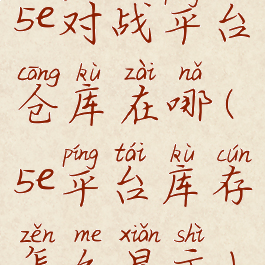 5e对战平台
cāng kù zài nǎ
仓库在哪(
píng tái kù cún
5e平台库存
zěn me xiǎn shì